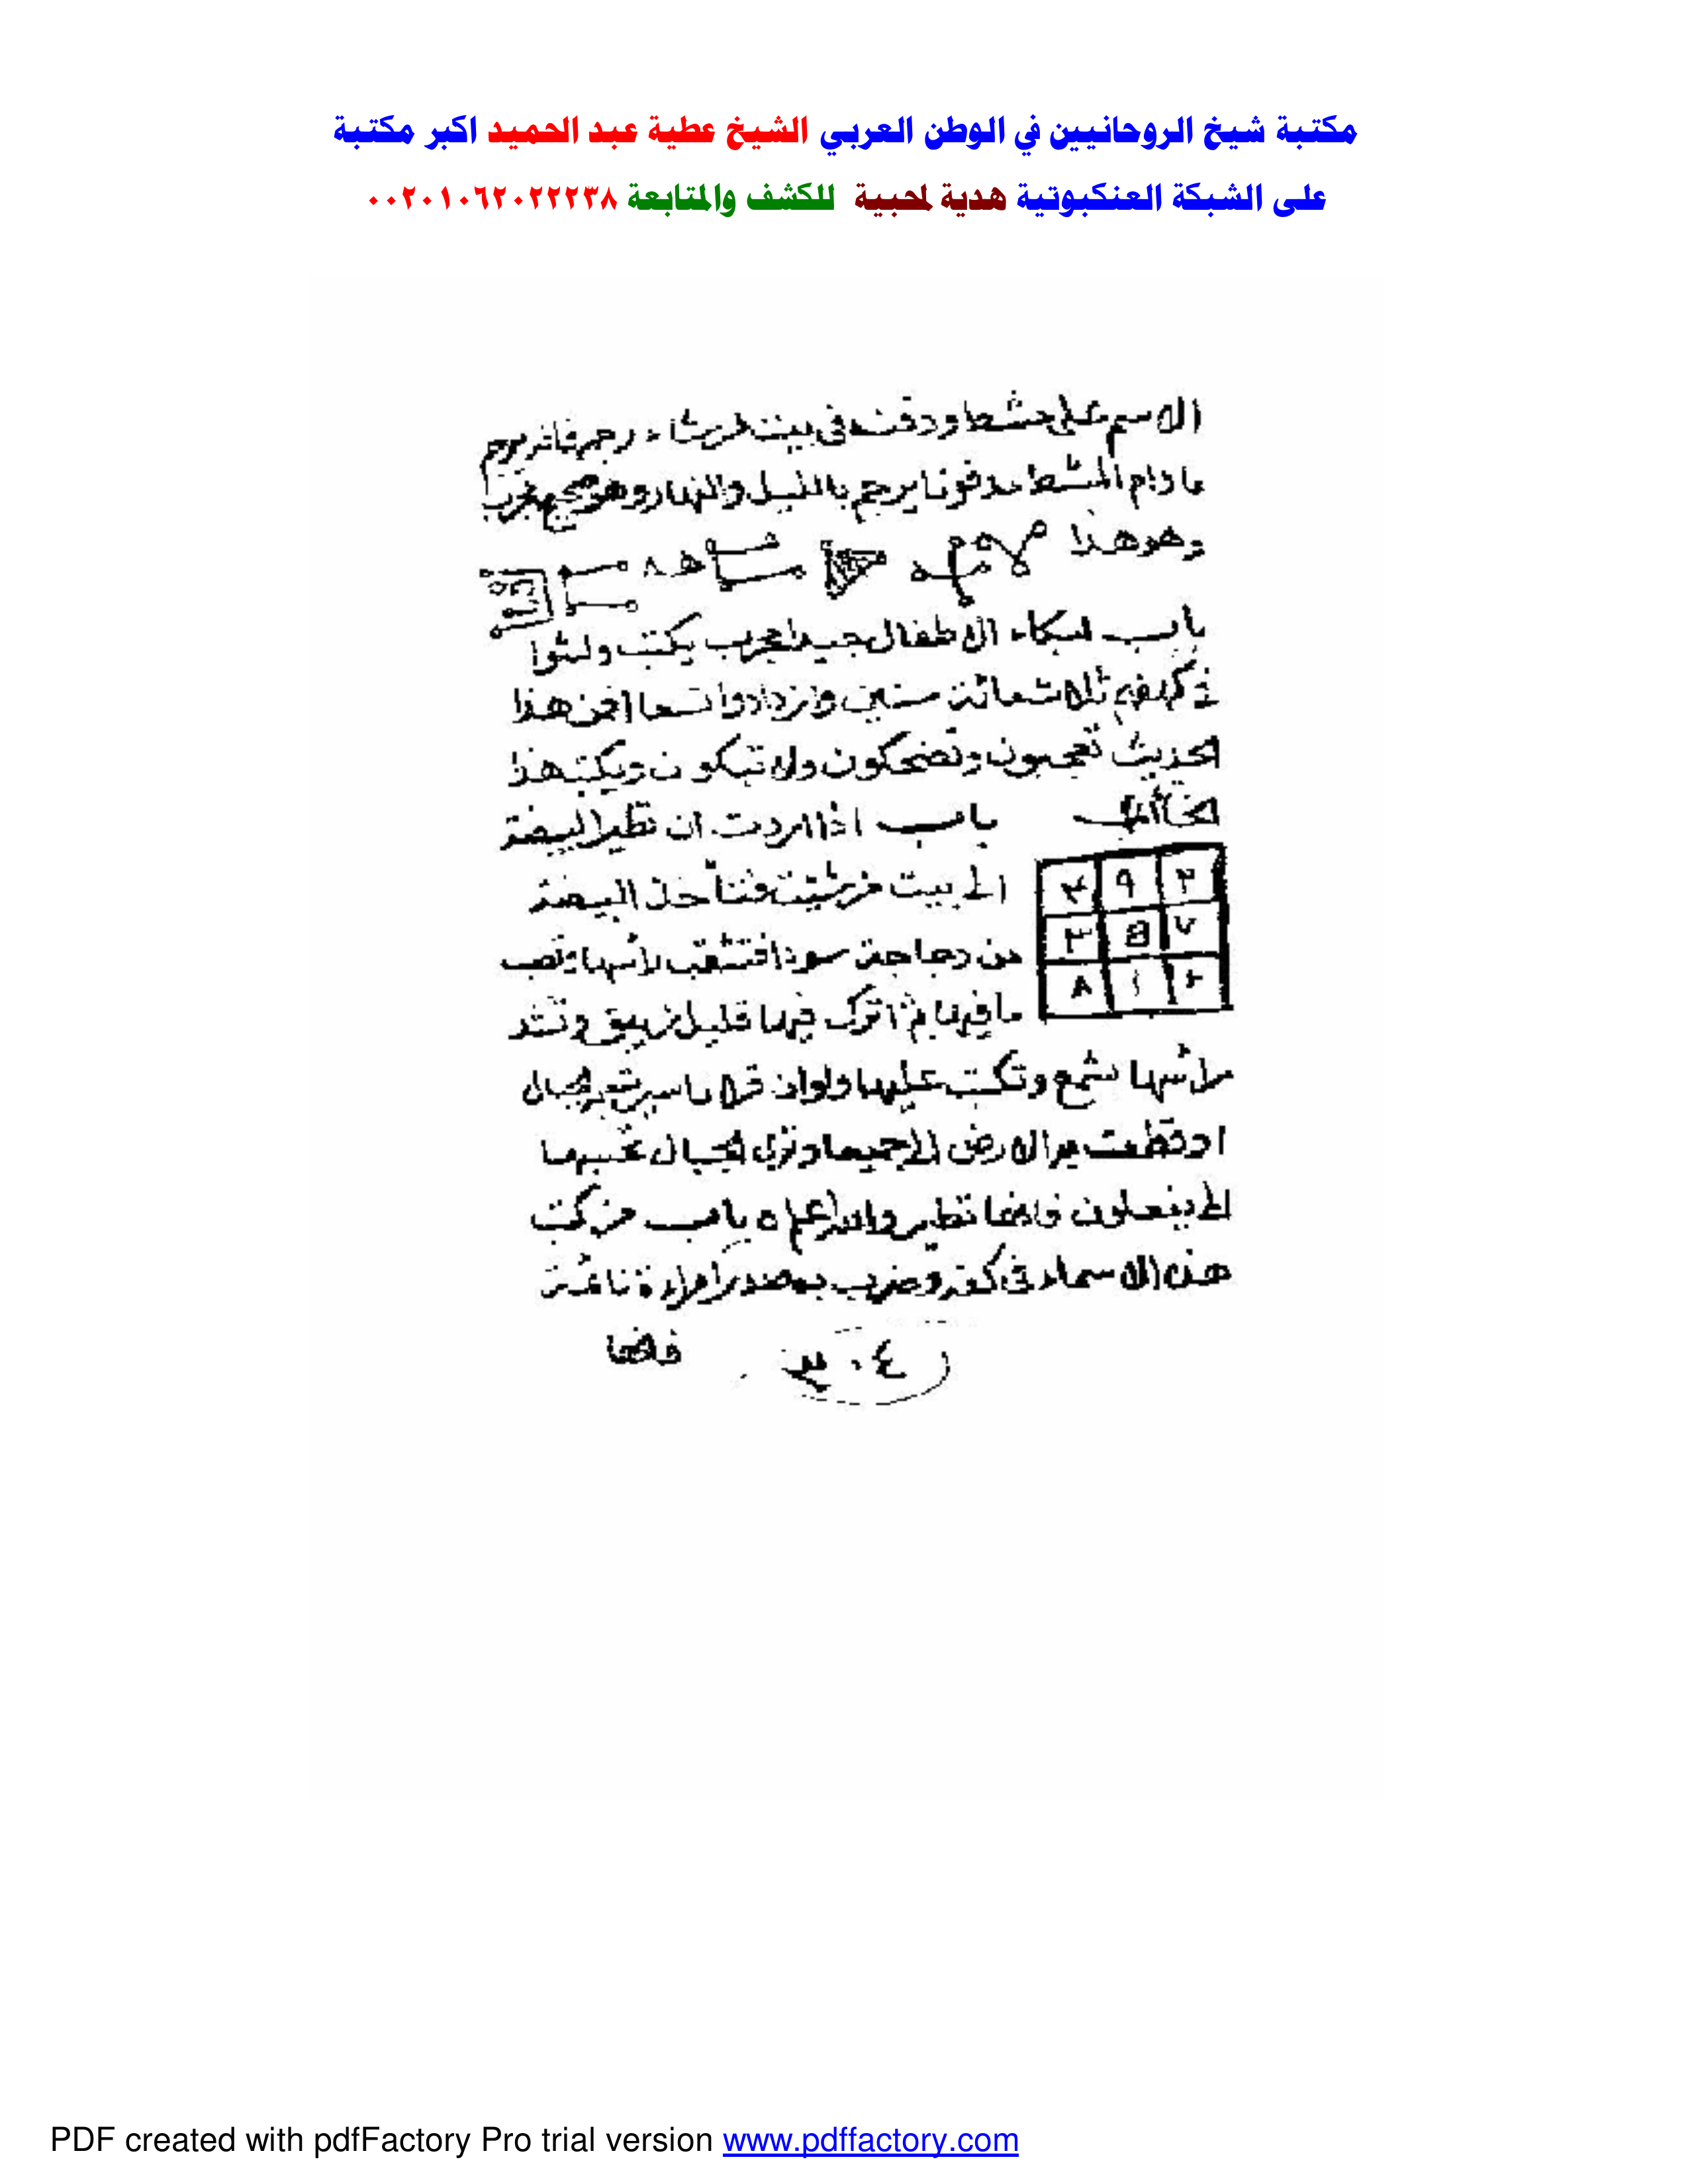 مكتبة شيخ الروحانيين في الوطن العربي الشيخ عطية عبد الحميد اكبر مكتبة
على الشبكة العنكبوتية هدية لمحبية للكشف والمتابعة ٠٠٢٠١٠٦٢٠٢٢٢٣٨
الاسم على مشط ودفنه فى بيت من شاء رجمه فانه يرجم
ما دام المشط مدفونا يرجم بالليل والنهار وهو صحيح مجرب
وهو هذا
باب لبكاء الاطفال جيد مجرب يكتب ولبثوا
فى كهفهم ثلاثمائة سنين وازدادوا تسعا افمن هذا
الحديث تعجبون وتضحكون ولا تبكون ويكتب هذا
باب اذا اردت ان تطير البيضة
الى بيت من شيت فتأخذ البيضة
٢ ٩ ٤
من دجاجة سودا فتثقب رأسها وتصب
٧ ٥ ٣
ما فيها ثم اترك فيها قليل زيبق وتسد
٦ ١ ٨
رأسها بشمع وتكتب عليها ولو ان قرانا سيرت به الجبال
او قطعت به الارض الى جميعا وترى الجبال تحسبها
الى يفعلون فانها تطير والله اعلم باب من كتب
هذه الاسماء فى كفه وضرب به صدر امراة ناعسة
فانها
٤٠
PDF created with pdfFactory Pro trial version www.pdffactory.com